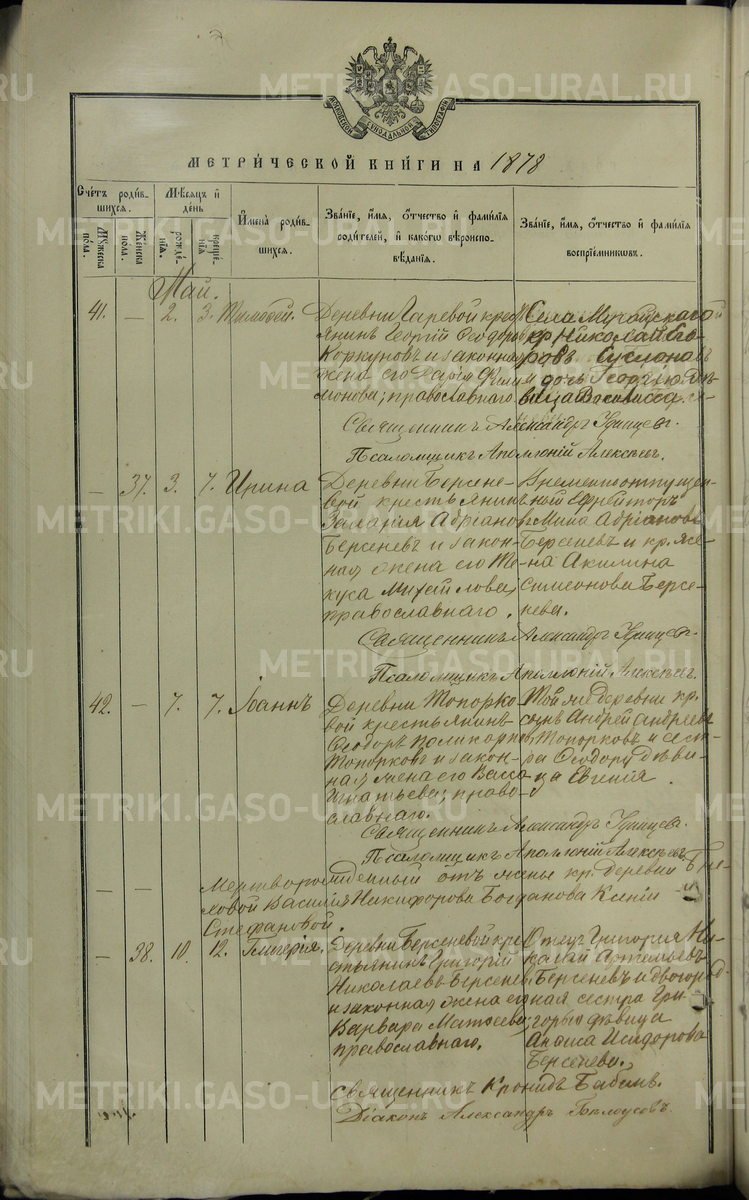 METRIKI.GASO-URAL.RU
МОСКОВСКОЙ СѴНОДАЛЬНОЙ ТИПОГРАФІИ
МЕТРИ́ЧЕСКОЙ КНИ́ГИ НА 1878
Сче́тъ роди́вшихсѧ.
Мꙋжеска по́ла.
Же́нска по́ла.
Мѣ́сѧцъ и҆ де́нь
рожде́нїѧ.
креще́нїѧ
И҆мена̀ роди́вшихсѧ.
Зва́нїе, и҆́мѧ, ѻ҆́тчество и҆ фами́лїѧ роди́телей, и҆ како́гѡ вѣроисповѣ́данїѧ.
Зва́нїе, и҆́мѧ, ѻ҆́тчество и҆ фами́лїѧ воспрїе́мникѡвъ.
Май.
41. — 2. 3. Тимофей.
Деревни Гаревой крест
янинъ Георгій Ѳеодоровъ
Коркуновъ и законная
жена его Дарія Фили
монова; православнаго.
кр. Николай Его
ровъ Суслановъ
и дочь Георгія дѣ
вица Василисса
Священникъ Александръ
Псаломщикъ Аполлоній Алексѣевъ.
— 37. 3. 7. Ирина
Деревни Берсене-
вой крестьянинъ
Захарія Адріановъ
Берсеневъ и закон-
ная жена его Ѳе-
куса Михайлова,
православнаго.
Временно отпущен-
ный ефрейторъ
Мина Адріановъ
Берсеневъ и кр. же-
на Акилина
Симеонова Берсе-
нева.
Священникъ Александръ
Псаломщикъ Аполлоній Алексѣевъ.
42. — 7. 7. Іоаннъ
Деревни Топорко
вой крестьянинъ
Ѳеодоръ Поликарповъ
Топорковъ и закон-
ная жена его Васса
Игнатьева; право-
славнаго.
Той же деревни кр.
сынъ Андрей Андреевъ
Топорковъ и сест-
ра Ѳеодору дѣви-
ца Евгенія.
Священникъ Александръ
Псаломщикъ Аполлоній Алексѣевъ
— — Мертворожденный отъ жены кр. деревни
Василія Никифорова Богданова Ксеніи
Стефановой.
— 38. 10. 12. Гликерія.
Деревни Берсеневой кре
стьянинъ Григорій
Николаевъ Берсеневъ
и законная жена его
Варвара Матѳеева;
православнаго.
Отецъ Григорія Ни-
колай Артемьевъ
Берсеневъ и двоюрод-
ная сестра Гри-
горью дѣвица
Анѳиса Исидорова
Берсенева.
Священникъ Кронидъ Бабинъ.
Діаконъ Александръ Бѣлоусовъ